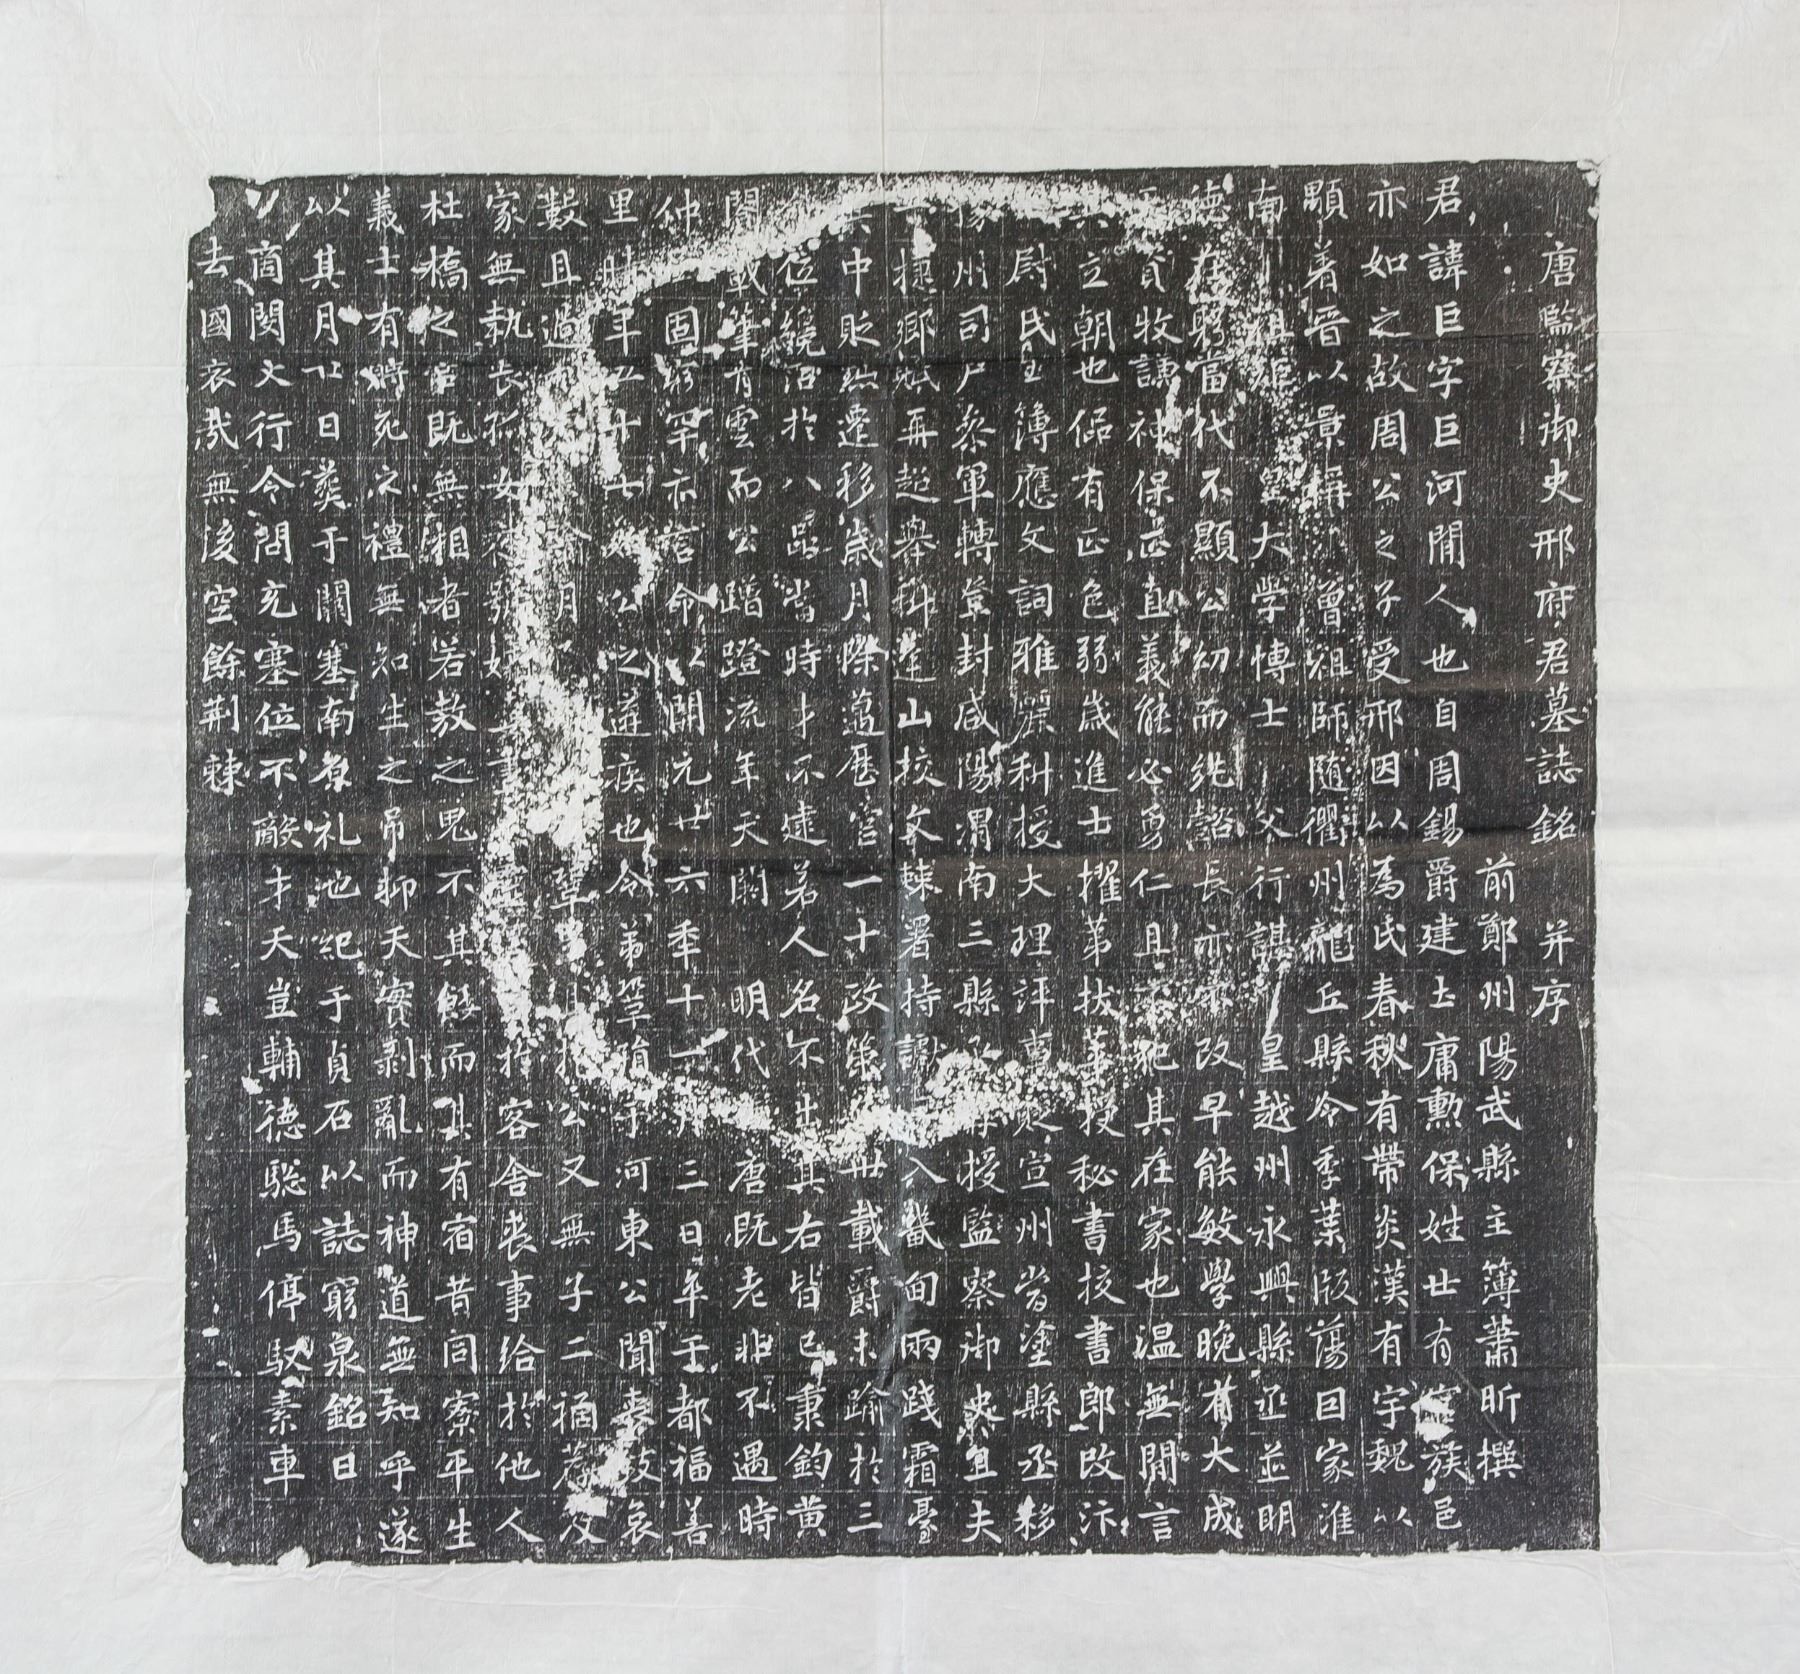 唐監察御史邢府君墓誌銘 并序
前鄭州陽武縣主簿蕭昕撰
君諱巨字巨河間人也自周錫爵建土庸勳保姓世有族邑
亦如之故周公之子受邢因以為氏春秋有帶炎漢有宇魏以
顒着晉以景稱曾祖師随衢州龍丘縣令季葉版蕩回家淮
南祖皇大学博士父行諶皇越州永興縣丞並明
德在躬當代不顯公幼而純懿長亦不改早能敏學晚有大成
貢牧謙神保正直義能必勇仁且不犯其在家也温無閒言
立朝也侃有正色弱歲進士擢第拔萃授秘書校書郎改汴
尉氏主簿應文詞雅麗科授大理評事貶宣州當塗縣丞移
揚州司户叅軍轉登封咸陽渭南三縣授監察御史且夫
擢鄉賦再超舉科逢山挍文棘署持讞入畿甸兩踐霜臺
其中貶黜遷移歲月際邁歷官一十政策卌載爵未踰於三
位纔沿於八品當時才不逮若人名不出其右皆已秉鈞黄
閣載筆青雲而公蹭蹬流年天閼明代唐既老非不遇時
仲固窮罕亦言命以開元廿六秊十一月三日卒于都福善
里時年五十七公之遘疾也令弟宰猗于河東公聞春鼓哀
數且過月宰公又無子二禍荐及
家無執長孤女悲號容舍喪事給於他人
杜橋之官既無相者若敖之鬼不其餒而其有宿昔同寮平生
義士有時死之禮無知生之弔抑天實剥亂而神道無知乎遂
以其月廿日葬于闕塞南原礼也紀于貞石以誌窮泉銘曰
商閔文行令問充塞位不敵才天豈輔德驄馬停馭素車
去國哀哉無後空餘荆棘